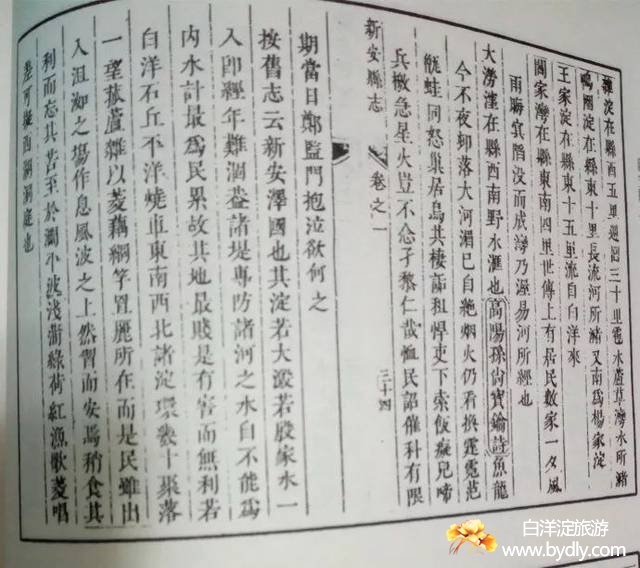 雜淀在縣西五里週迴三十里雹水蘆草灣水所瀦
鳴圈淀在縣東十里長流河所瀦又南為楊家淀
王家淀在縣東十五里流自白洋來
閻家灣在縣東南四里世傳上有居民數家一夕風
雨晦冥陷沒而成灣乃溼易河所經也
大澇淀在縣西南野水滙也高陽孫尚寶鑰詩魚龍
今不夜抑落大河湄已自絶烟火仍看換霆霓范
甑蛙同怒巢居烏共棲齋租悍吏下索飯癡兒啼
兵檄急星火豈不念孑黎仁哉恤民詔催科有限
新安縣志
卷之一
三十四
期當日鄭監門抱泣欲何之
按舊志云新安澤國也其淀若大澱若殷家水一
入即經年難涸葢諸堤專防諸河之水自不能為
内水計最為民累故其地最賤是有害而無利若
白洋石丘不洋燒車東南西北諸淀環數十聚落
一望菰蘆雜以菱藕網罟罝麗所在而是民雖出
入沮洳之場作息風波之上然習而安焉稍食其
利而忘其苦至於瀾不波淺芾綠荷紅漁歌菱唱
差可擬西湖洞庭也
白洋淀旅游
www.bydly.com